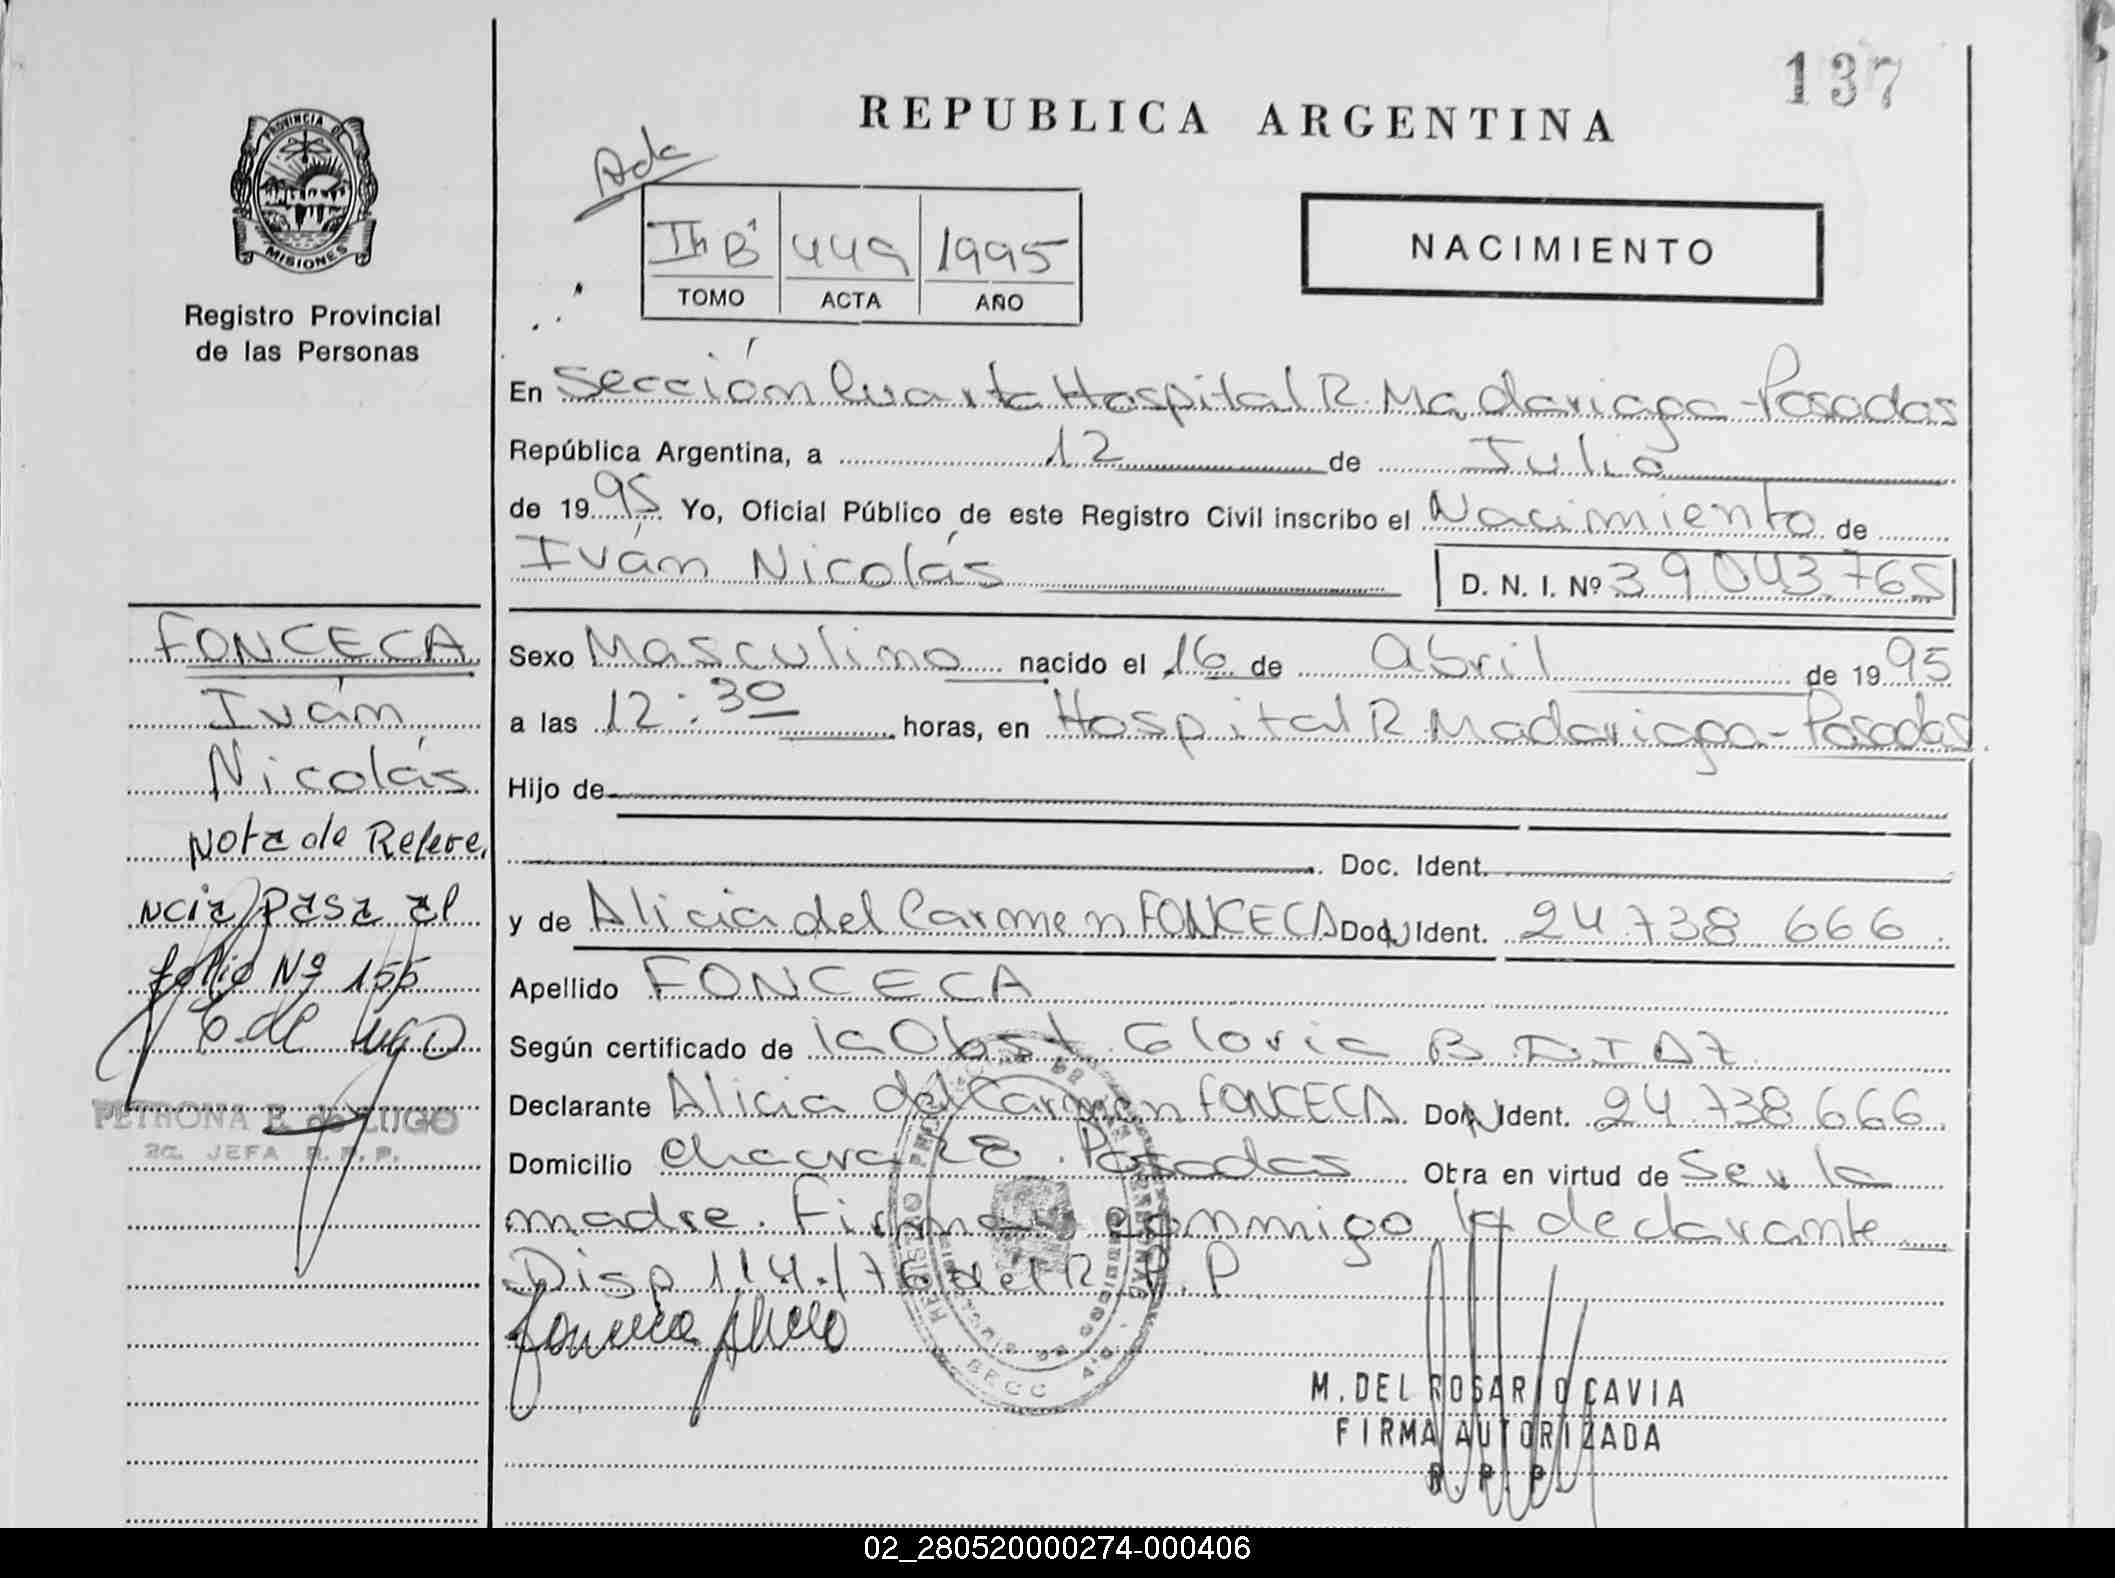 137
REPUBLICA ARGENTINA
PROVINCIA DE
MISIONES
Registro Provincial
de las Personas
Ada
II B 449 1995
TOMO ACTA AÑO
NACIMIENTO
En Sección Cuarta Hospital R. Madariaga - Posadas
República Argentina, a 12 de Julio
de 1995 Yo, Oficial Público de este Registro Civil inscribo el Nacimiento de
Iván Nicolás D. N. I. Nº 39.043.765
FONCECA
Iván
Nicolás
Nota de Refere
ncia Pasa al
folio Nº 155
PETRONA E. de LUGO
JEFA R. P. P.
Sexo Masculino nacido el 16 de Abril de 1995
a las 12:30 horas, en Hospital R. Madariaga - Posadas
Hijo de
Doc. Ident.
y de Alicia del Carmen FONCECA Doc. Ident. 24 738 666
Apellido FONCECA
Según certificado de la Obst. Gloria B. DIAZ
Declarante Alicia del Carmen FONCECA Doc. Ident. 24.738.666
Domicilio Chacra 28. Posadas Obra en virtud de Ser la
madre. Firma conmigo la declarante
Disp 114/76 del R.P.P
Fonceca Alicia
M. DEL ROSARIO CAVIA
FIRMA AUTORIZADA
R. P. P.
02_280520000274-000406